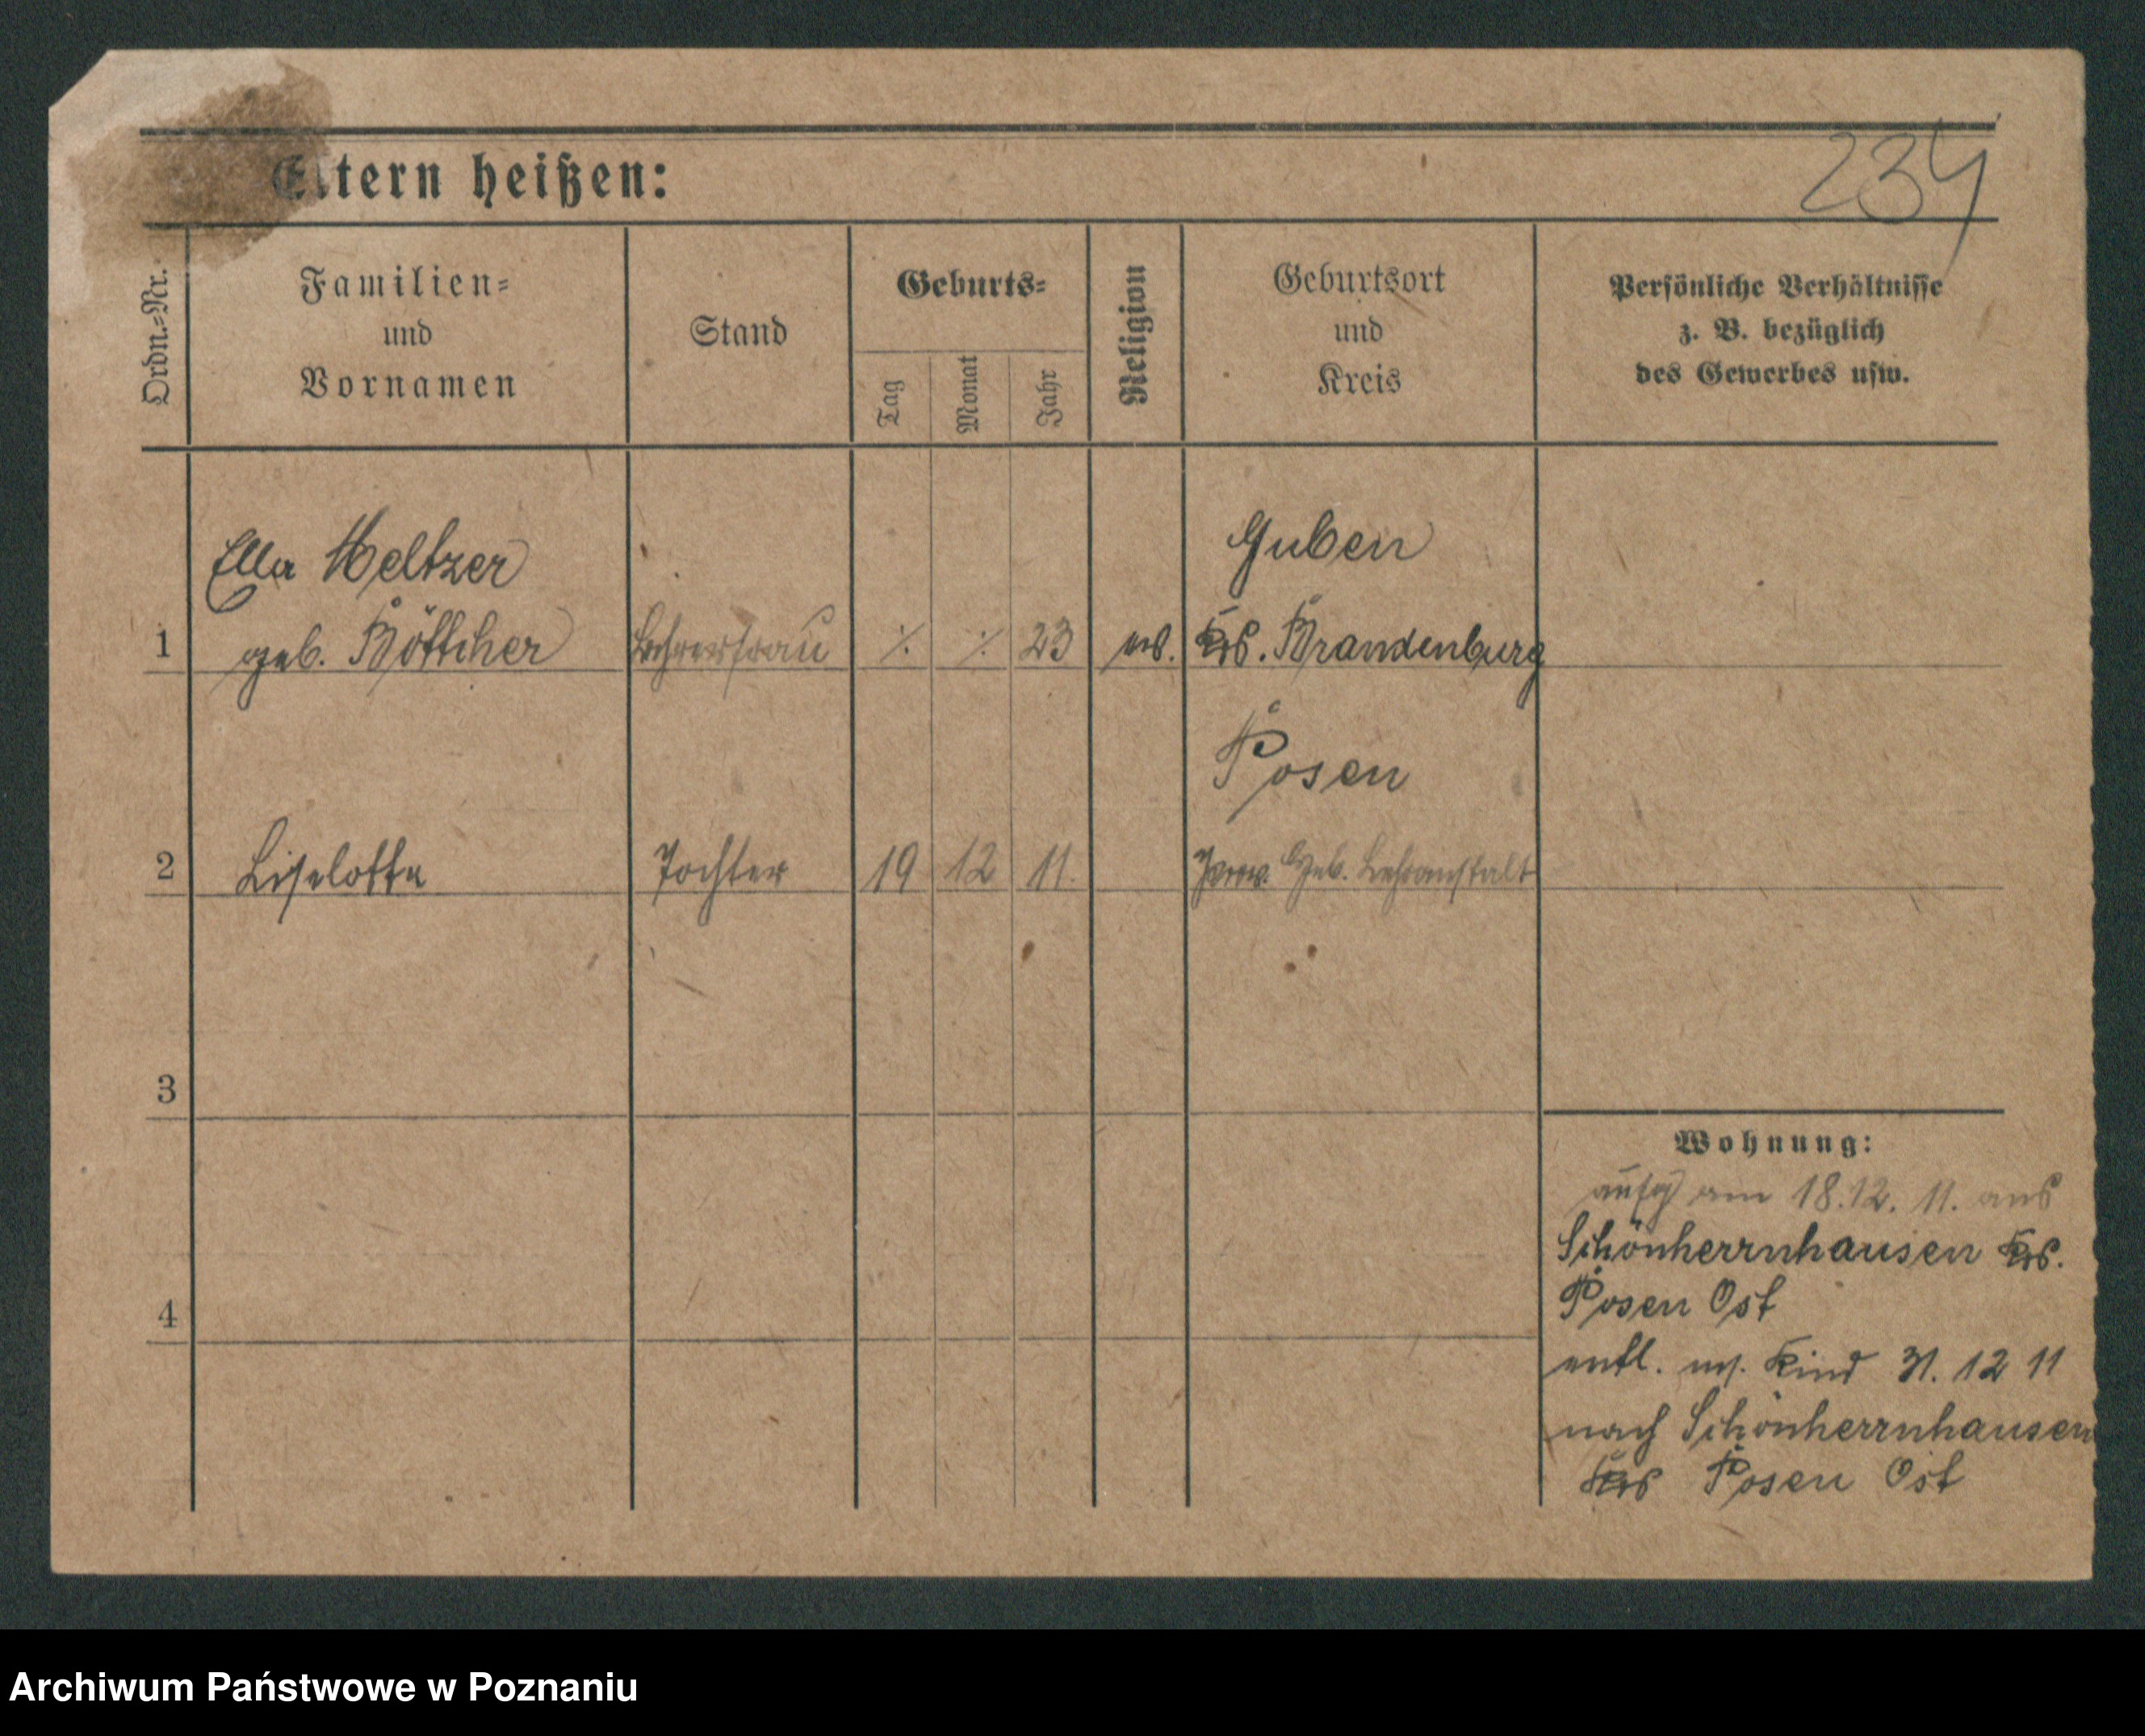 Eltern heißen:
234
Ordn.-Nr.
Familien-
und
Vornamen
Stand
Geburts-
Tag
Monat
Jahr
Religion
Geburtsort
und
Kreis
Persönliche Verhältnisse
z. B. bezüglich
des Gewerbes usw.
Ella Meltzer
Guben
1 geb. Böttcher Lehrersfrau ·/. ·/. 23 ev. Krs. Brandenburg
Posen
2 Liselotte Tochter 19 12 11. Prov. Heb. Lehranstalt
3
Wohnung:
am 18.12. 11. aus
Schönherrnhausen Krs.
4
Posen Ost
entl. m. Kind 31. 12 11
nach Schönherrnhausen
Krs Posen Ost
Archiwum Państwowe w Poznaniu